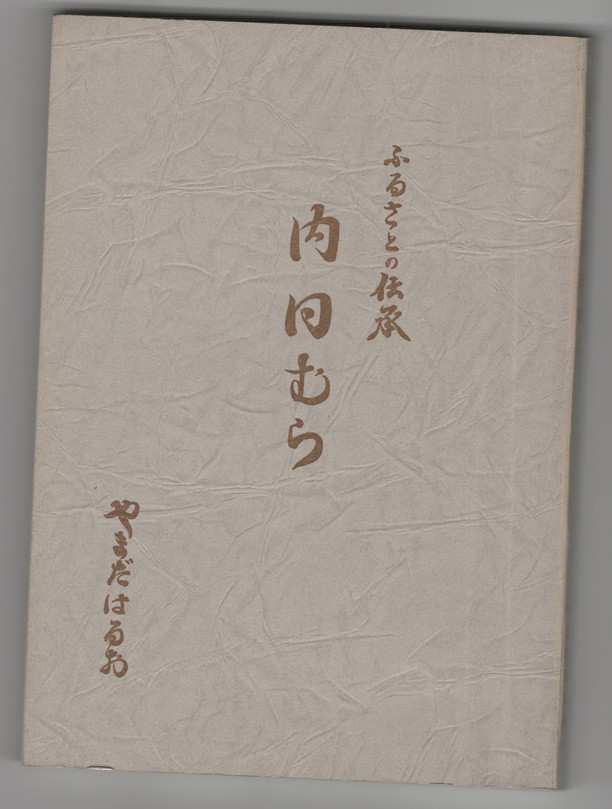 ふるさとの伝承
内日むら
やまだはるお